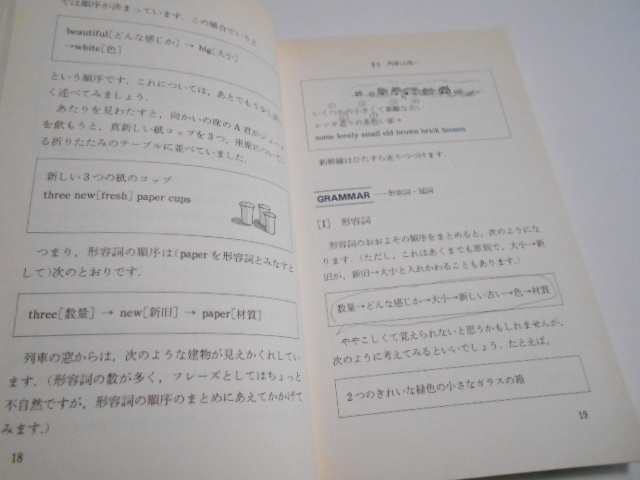 では順序が決まっています．この場合でいうと
beautiful[どんな感じか] → big[大小]
→white[色]
という順序です．これについては，あとでもう少し
く述べてみましょう．
あたりを見わたすと，向かいの席のA君が
を飲もうと，真新しい紙コップを3つ，座席について
る折りたたみのテーブルに並べていました．
新しい3つの紙のコップ
three new[fresh] paper cups
つまり，形容詞の順序は(paperを形容詞とみなすと
して)次のとおりです．
three[数量] → new[新旧] → paper[材質]
列車の窓からは，次のような建物が見えかくれしてい
ます．(形容詞の数が多く，フレーズとしてはちょっと
不自然ですが，形容詞の順序のまとめにあえてかかげて
みます．)
18
いくつかの小さくて素敵な古い
レンガ造りの茶色い家々
some lovely small old brown brick houses
新幹線はひたすら走りつづけます．
GRAMMAR——形容詞・冠詞
[1] 形容詞
形容詞のおおよその順序をまとめると，次のようにな
ります．(ただし，これはあくまでも原則で，大小→新
旧が，新旧→大小と入れかわることもあります.)
数量→どんな感じか→大小→新しい古い→色→材質
ややこしくて覚えられないと思うかもしれませんが，
次のように考えてみるといいでしょう．たとえば，
2つのきれいな緑色の小さなガラスの箱
19